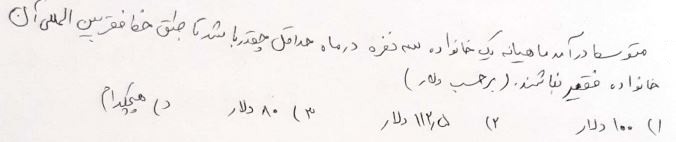 متوسط درآمد ماهیانه یک خانواده سه نفره در ماه حداقل چقدر باشد تا طبق خط فقر بین المللی آن
خانواده فقیر نباشند. (برحسب دلار)
۱) ۱۰۰ دلار ۲) ۱۱۲٫۵ دلار ۳) ۸۰ دلار د) هیچکدام